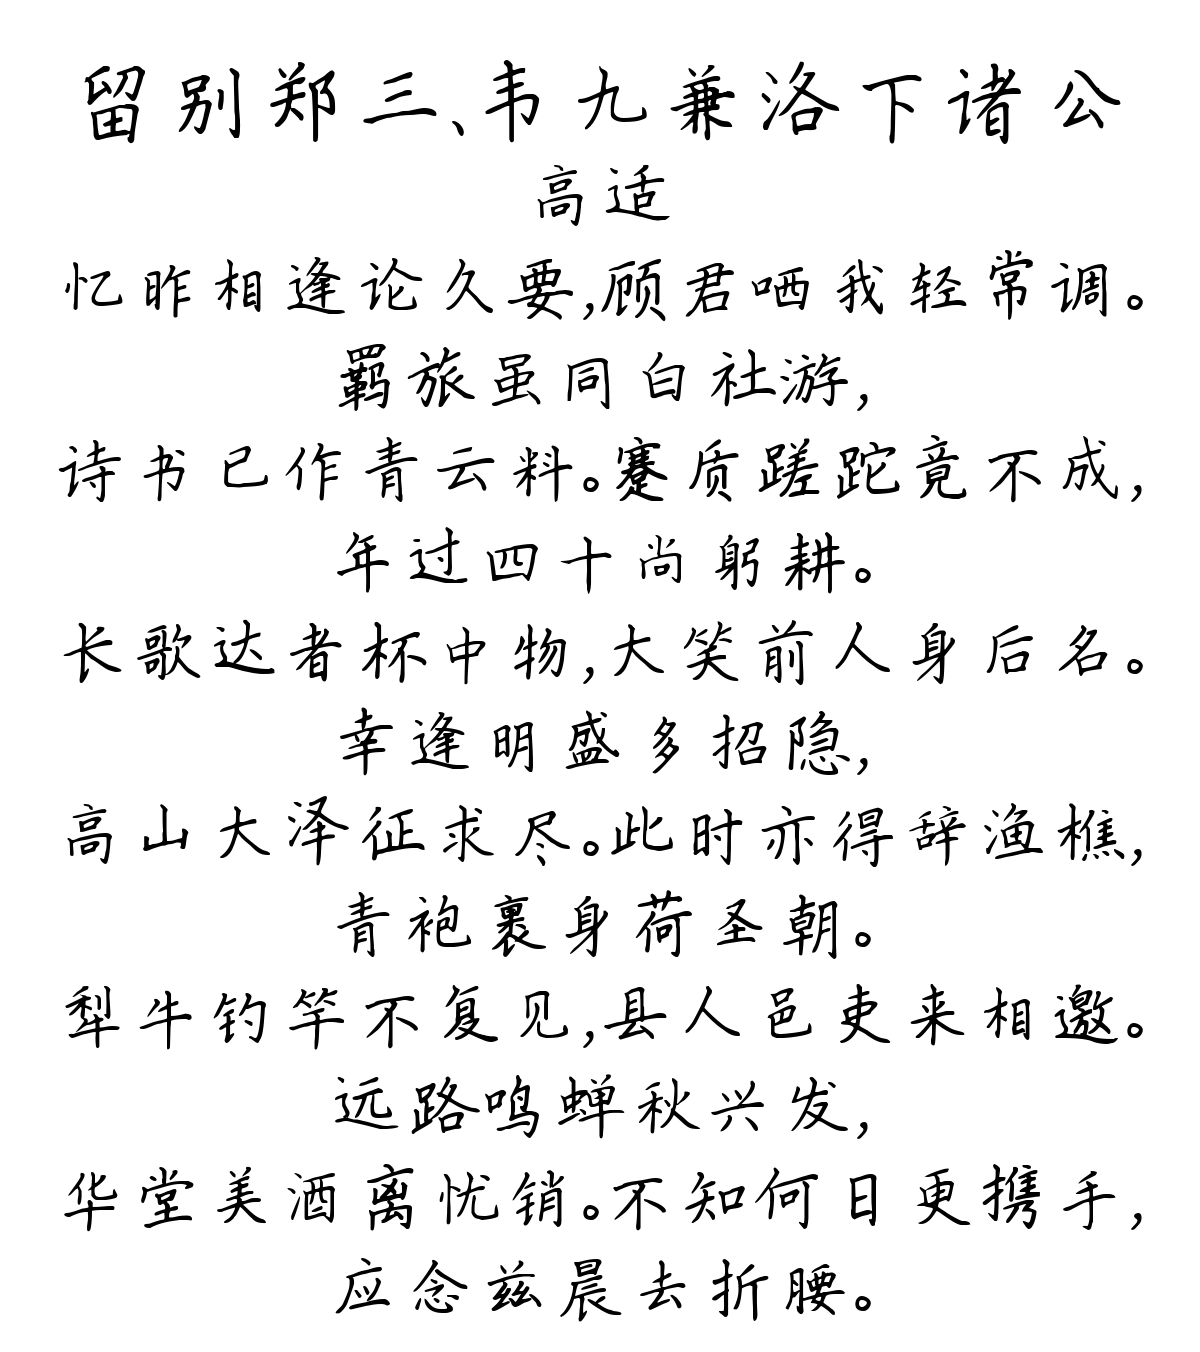 留别郑三、韦九兼洛下诸公
高适
忆昨相逢论久要,顾君哂我轻常调。
羁旅虽同白社游,
诗书已作青云料。蹇质蹉跎竟不成,
年过四十尚躬耕。
长歌达者杯中物,大笑前人身后名。
幸逢明盛多招隐,
高山大泽征求尽。此时亦得辞渔樵,
青袍裹身荷圣朝。
犁牛钓竿不复见,县人邑吏来相邀。
远路鸣蝉秋兴发,
华堂美酒离忧销。不知何日更携手,
应念兹晨去折腰。